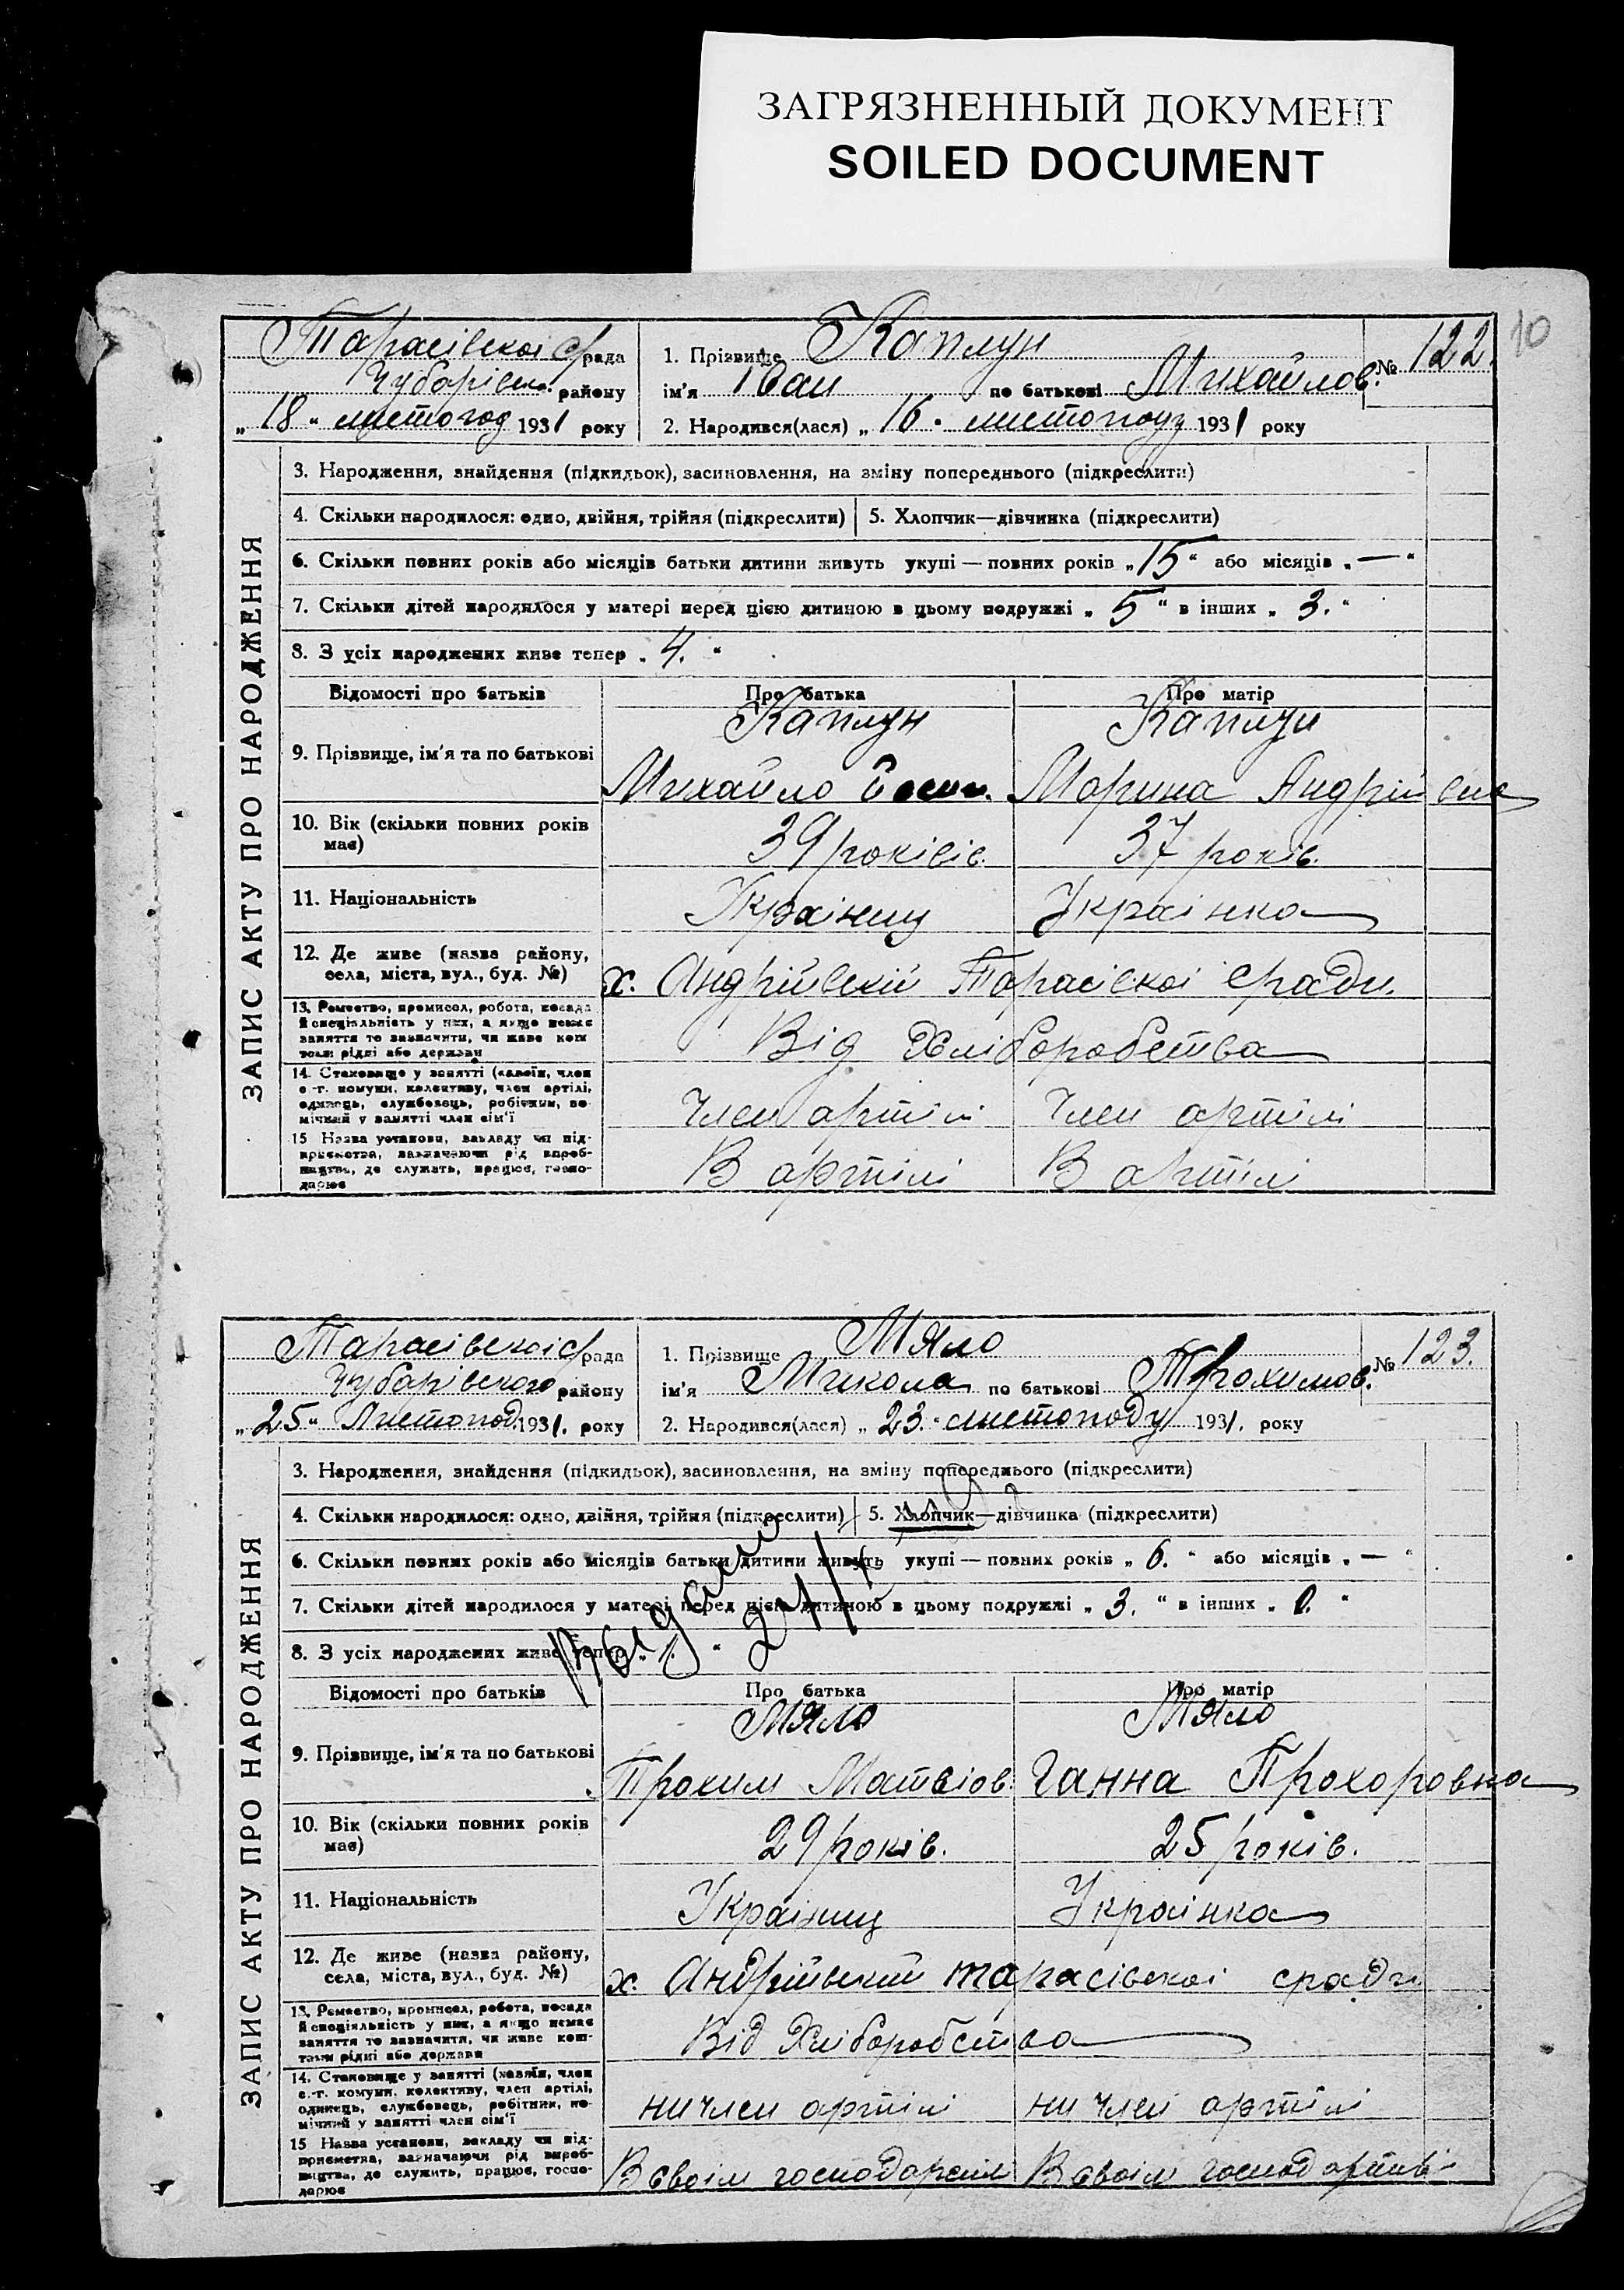 ЗАГРЯЗНЕННЫЙ ДОКУМЕНТ
SOILED DOCUMENT
10
Тарасівської с/рада
Чубарівськ. району
„ 18 “ листопод 1931 року
1. Прізвище Каплун
ім'я Іван по батькові Михайлов.
№ 122.
2. Народився(лася) „ 16 “ листоподу 1931 року
ЗАПИС АКТУ ПРО НАРОДЖЕННЯ
3. Народження, знайдення (підкидьок), засиновлення, на зміну попереднього (підкреслити)
4. Скільки народилося: одно, двійня, трійня (підкреслити) 5. Хлопчик—дівчинка (підкреслити)
6. Скільки повних років або місяців батьки дитини живуть укупі — повних років „ 15 “ або місяців „ — “
7. Скільки дітей народилося у матері перед цією дитиною в цьому подружжі „ 5 “ в інших „ 3. “
8. З усіх народжених живе тепер „ 4. “
Відомості про батьків Про батька Про матір
Каплун Каплун
9. Прізвище, ім'я та по батькові
Михайло Йосип. Марина Андріівна
10. Вік (скільки повних років має)
39 роківів. 37 років.
11. Національність Українец Українка
12. Де живе (назва району,
села, міста, вул., буд. №) х. Андріівский Тарасівскоі с/ради.
13. Ремество, промисел, робота, посада
й спеціяльність у них, а якщо немає
заняття то зазначити, чи живе кош-
том рідні або держави
Від Хліборобства
14. Становище у занятті (хазяїн, член
с.-г. комуни, колективу, член артілі,
одинець, службовець, робітник, по-
мічний у занятті член сім'ї
Член артілі Член артілі
15 Назва установи, закладу чи під-
приємства, зазначаючи рід вироб-
ництва, де служить, працює, госпо-
дарює
В артілі В артілі
Тарасівськоі с/рада
Чубарівського району
„ 25 “ Листопод. 1931. року
1. Прізвище Мяло
ім'я Микола по батькові Трохимов.
№ 123.
2. Народився(лася) „ 23. “ листоподу 1931. року
ЗАПИС АКТУ ПРО НАРОДЖЕННЯ
3. Народження, знайдення (підкидьок), засиновлення, на зміну попереднього (підкреслити)
4. Скільки народилося: одно, двійня, трійня (підкреслити) 5. Хлопчик—дівчинка (підкреслити)
6. Скільки повних років або місяців батьки дитини живуть укупі — повних років „ 6. “ або місяців „ — “
7. Скільки дітей народилося у матері перед цією дитиною в цьому подружжі „ 3. “ в інших „ 0. “
8. З усіх народжених живе тепер „ 1. “
Відомості про батьків Про батька Про матір
Мяло Мяло
9. Прізвище, ім'я та по батькові
Трохим Матвіов. Ганна Прохоровна
10. Вік (скільки повних років має)
29 років. 25 років.
11. Національність Українец Українка
12. Де живе (назва району,
села, міста, вул., буд. №) х. Андріівский тарасівскоі сради
13. Ремество, промисел, робота, посада
й спеціяльність у них, а якщо немає
заняття то зазначити, чи живе кош-
том рідні або держави
Від Хліборобства
14. Становище у занятті (хазяїн, член
с.-г. комуни, колективу, член артілі,
одинець, службовець, робітник, по-
мічний у занятті член сім'ї
ни член артілі ни член артілі
15 Назва установи, закладу чи під-
приємства, зазначаючи рід вироб-
ництва, де служить, працює, госпо-
дарює
В своім господарстві В своім господарстві